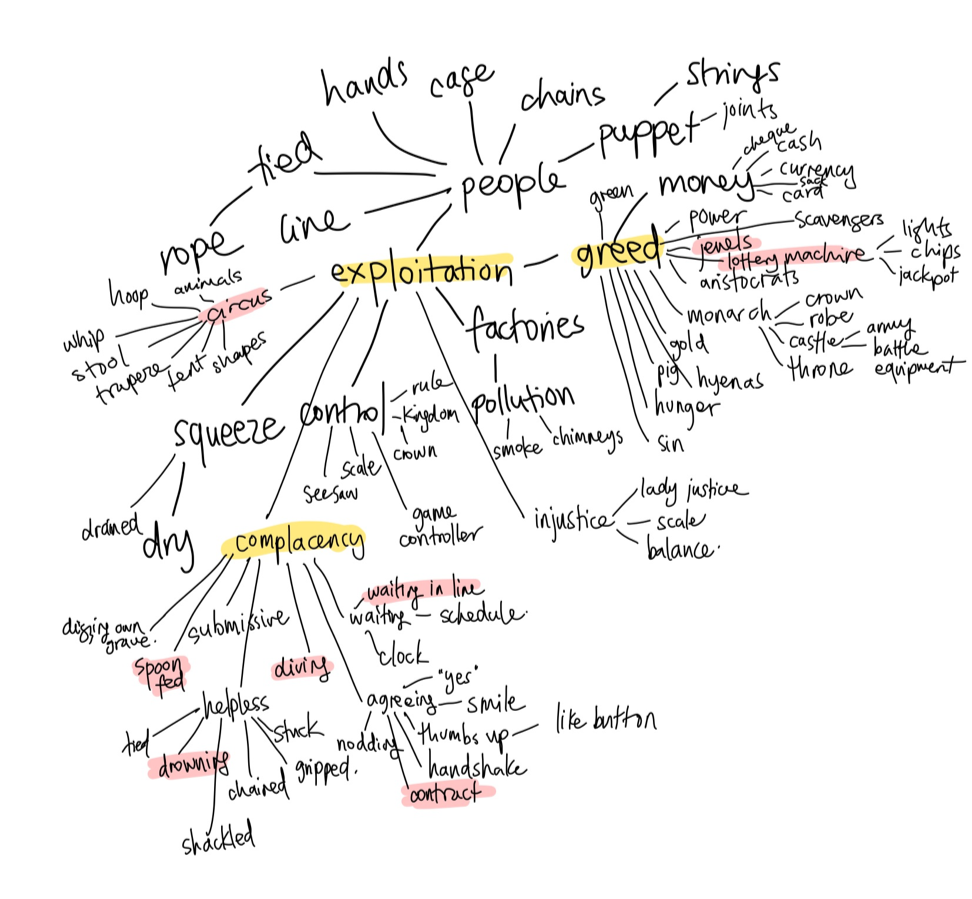 hands
cage
chains
strings
puppet
joints
tied
people
cheque
cash
money
currency
sack
card
green
rope
line
power
scavengers
greed
jewels
lights
lottery machine
chips
jackpot
aristocrats
exploitation
animals
hoop
circus
whip
stool
trapeze
tent
shapes
factories
monarch
crown
robe
castle
army
battle
equipment
throne
gold
pig
hyenas
hunger
sin
squeeze
control
rule
kingdom
crown
scale
seesaw
game
controller
pollution
smoke
chimneys
drained
dry
complacency
injustice
lady justice
scale
balance.
digging own
grave.
submissive
spoon
fed
diving
waiting in line
waiting
schedule.
clock
helpless
tied
drowning
stuck
gripped.
chained
shackled
agreeing
"yes"
smile
nodding
thumbs up
like button
handshake
contract